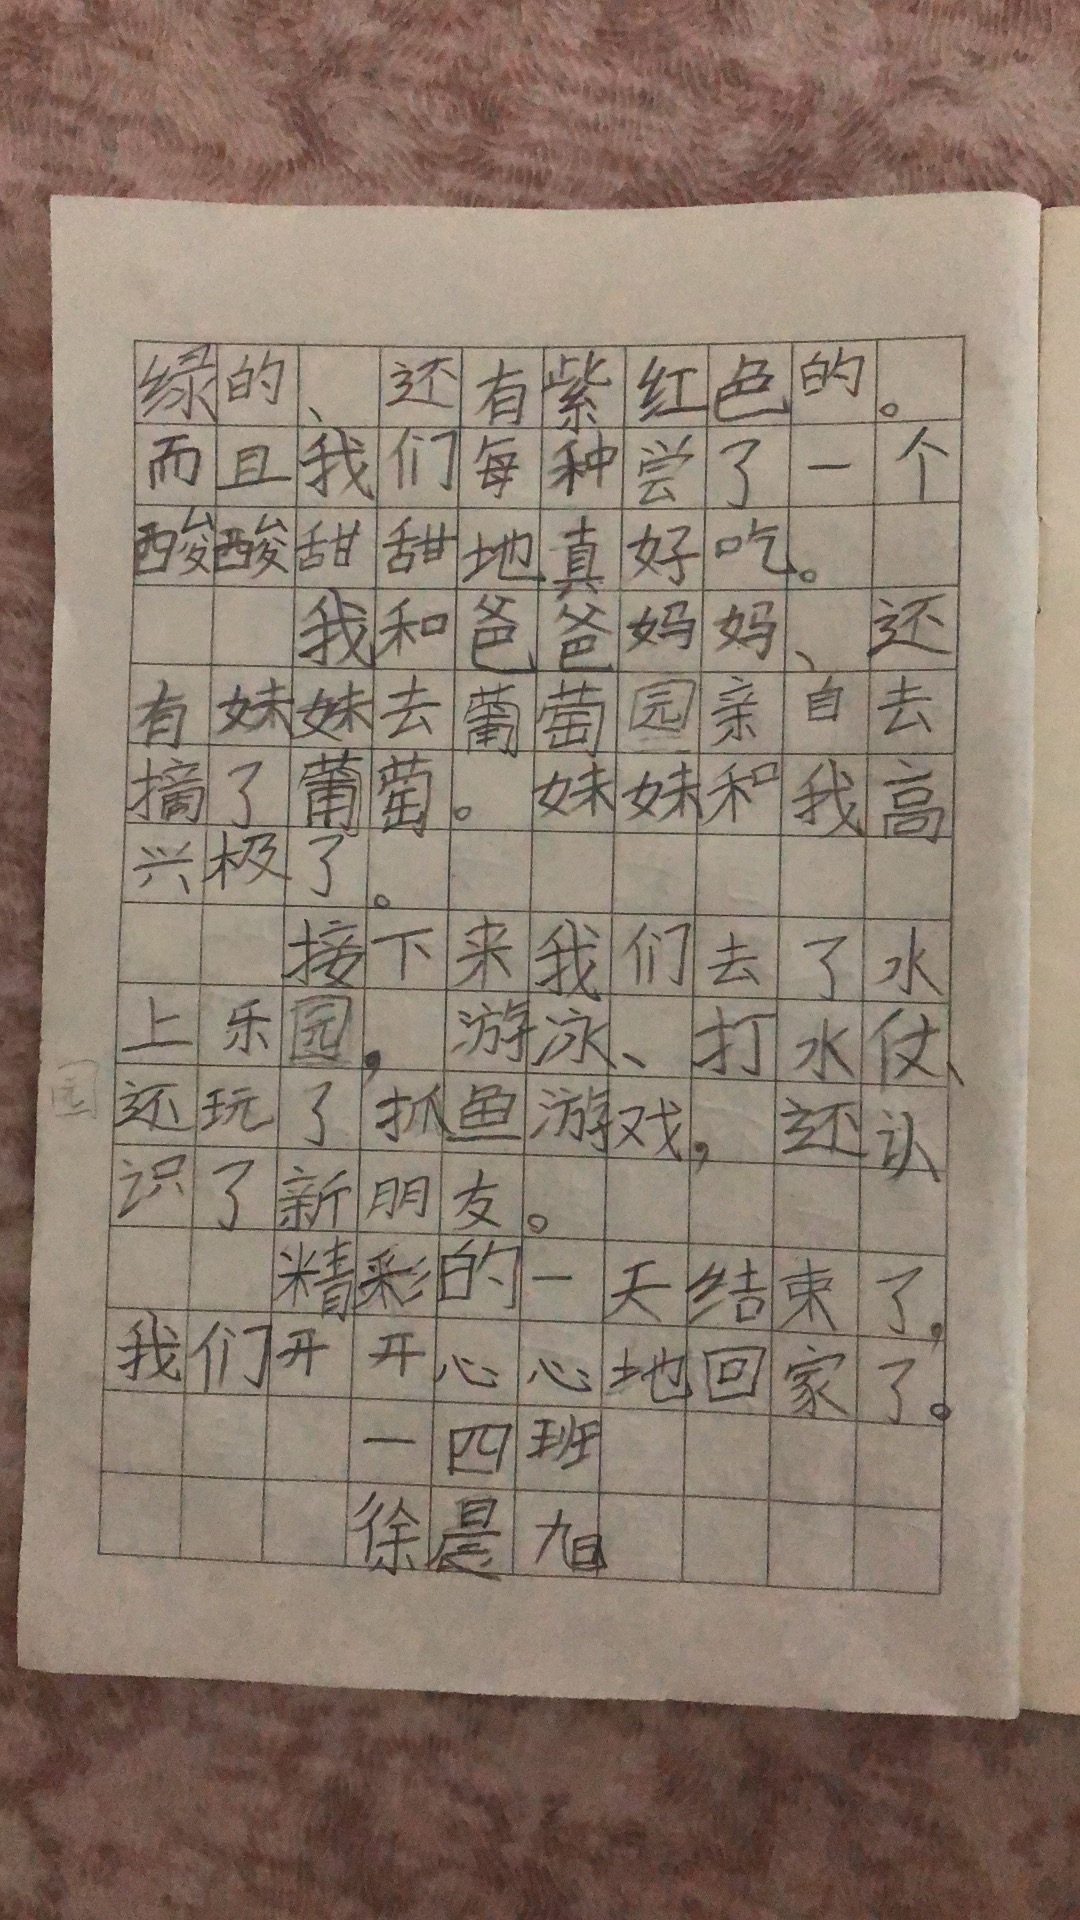 绿的、还有紫红色的。
而且我们每种尝了一个
酸酸甜甜地真好吃。
我和爸爸妈妈、还
有妹妹去葡萄园亲自去
摘了葡萄。妹妹和我高
兴极了。
接下来我们去了水
上乐园，游泳、打水仗、
园
还玩了抓鱼游戏，还认
识了新朋友。
精彩的一天结束了，
我们开开心心地回家了。
一四班
徐晨旭